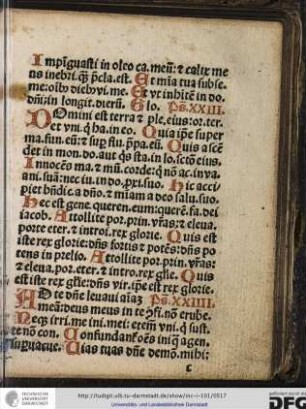 Impīguasti in oleo ca. meū: ⁊ calix me
us inebri. q̄ p̄cla. est. Et mīa tua subse.
me: oīb dieb vi. me. Et vt inhītē in do.
dn̄i: in longit. dierū. Glo. Ps̄. XXIII.
Domini est terra ⁊ ple. eius: or. ter.
Det vni. q̄ ha. in eo. Quia ip̄e super
ma. fun. eū: ⁊ sup̄ flu. p̄pa. eū. Quis ascē
det in mon. do. aut q̄s sta. in lo. sctō eius.
Innocēs ma. ⁊ mū. corde: q̄ nō ac. in va.
ani. suā: nec iu. in do. p̄xi. suo. Hic acci
piet bn̄dic. a dn̄o. ⁊ miam a deo salu. suo.
Hec est gene. queren. eum: querē. fa. dei
iacob. Attollite por. prin. vr̄as: ⁊ eleua.
porte eter. ⁊ introi. rex glorie. Quis est
iste rex glorie: dn̄s fortis ⁊ potēs: dn̄s po
tens in prelio. Attollite por. prin. vr̄as:
⁊ eleua. por. eter. ⁊ intro. rex gl̄ie. Quis
est iste rex gl̄ie: dn̄s vir. ip̄e est rex glorie.
AD te dn̄e leuaui aīaz Ps̄. XXIIII.
meā: deus meus in te ꝯfi. nō erube.
Neqz irri. me ini. mei: etem̄ vni. q̄ sust.
te nō con. Confundant̄ oēs iniq̄ agen.
sup̄uacue. Uias tuas dn̄e demō. mihi:
c
http://tudigit.ulb.tu-darmstadt.de/show/inc-i-101/0517
Universitäts- und Landesbibliothek Darmstadt
DFG